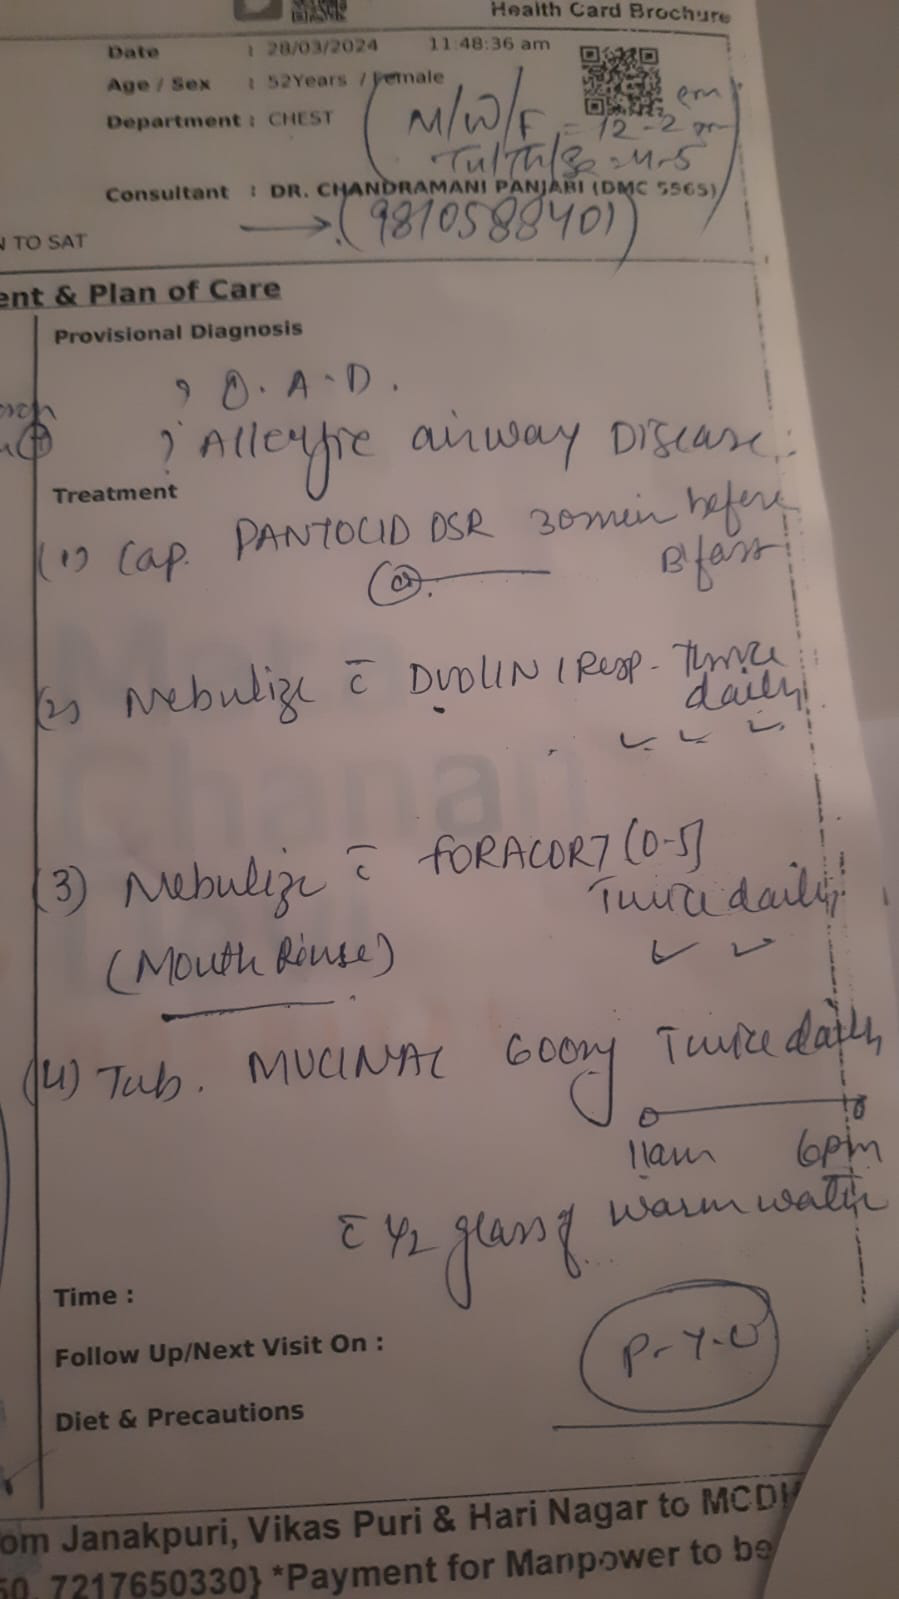 Health Card Brochure
Date : 28/03/2024 11:48:36 am
Age / Sex : 52Years / Female
Department : CHEST
M/W/F = 12-2 pm
Tu/Th/Sa = 4-5 pm
Consultant : DR. CHANDRAMANI PANJABI (DMC 5565)
(9810588401)
N TO SAT
ent & Plan of Care
Provisional Diagnosis
? O.A.D.
? Allergic airway Disease
Treatment
(1) Cap. PANTOCID DSR 30 min before
B'fast
(2) Nebulize c̄ DUOLIN 1 Resp - Thrice
daily
(3) Nebulize c̄ FORACORT (0.5)
Twice daily
(Mouth Rinse)
(4) Tab. MUCINAC 600mg Twice daily
11am 6pm
c̄ 1/2 glass of warm water
Time :
Follow Up/Next Visit On :
P-T-O
Diet & Precautions
om Janakpuri, Vikas Puri & Hari Nagar to MCDH
50, 7217650330} *Payment for Manpower to be